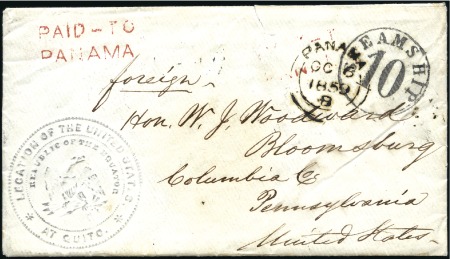 PAID-TO
PANAMA
foreign.
PANA
OC 6
1859
B
STEAMSHIP
10
Hon. W. J. Woodward
Bloomsburg
Columbia Co
Pennsylvania
United States
LOCATION OF THE UNITED STATES
REPUBLIC OF THE EQUATOR
* AT QUITO. *